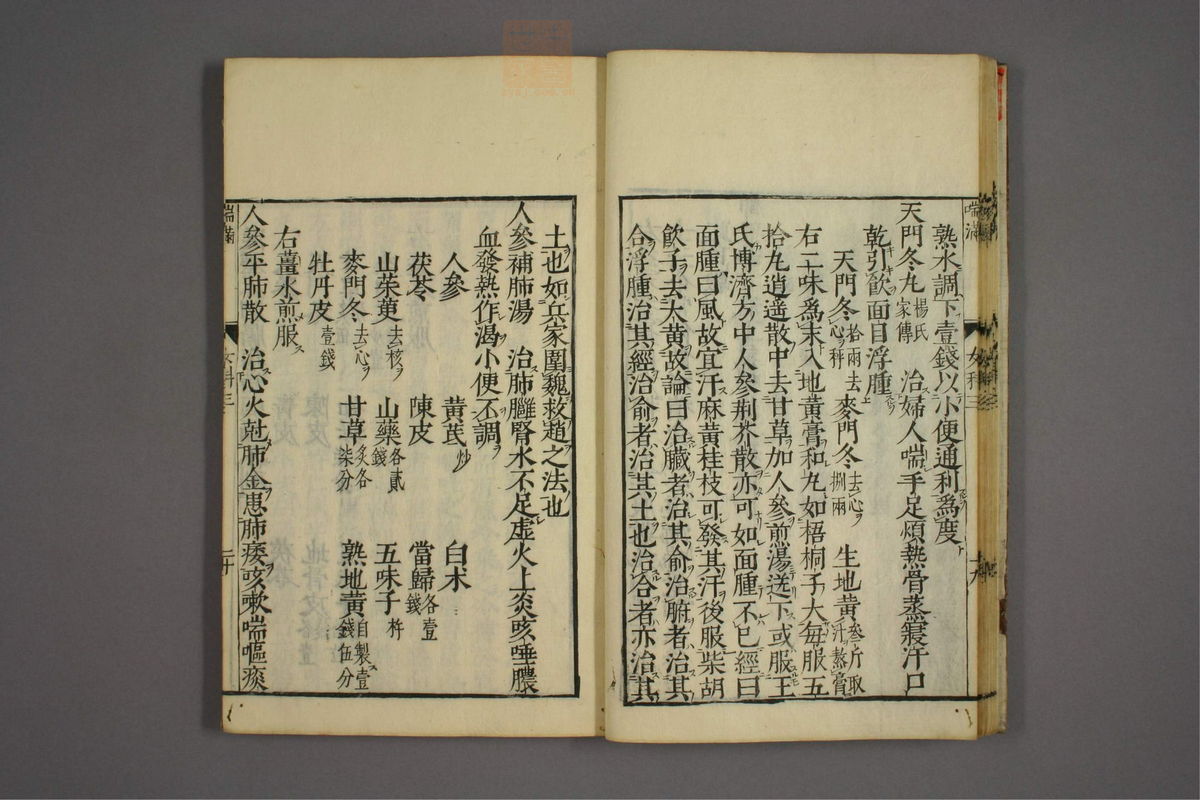 喘滿
女科三
十九
熟水調下壹錢以小便通利爲度
天門冬丸楊氏家傳 治婦人喘手足煩熱骨蒸寢汗口
乾引飲面目浮腫
天門冬拾兩去心秤 麥門冬去心捌兩 生地黃叁斤取汁熬膏
右二味爲末入地黃膏和丸如梧桐子大每服五
拾丸逍遙散中去甘草加人參煎湯送下或服王
氏博濟方中人參荆芥散亦可如面腫不已經曰
面腫曰風故宜汗麻黃桂枝可發其汗後服柴胡
飲子去大黃故論曰治臟者治其俞治腑者治其
合浮腫治其經治俞者治其土也治合者亦治其
土也如兵家圍魏救趙之法也
人參補肺湯 治肺臃腎水不足虛火上炎咳唾膿
血發熱作渴小便不調
人參 黃芪炒 白朮
茯苓 陳皮 當歸各壹錢
山茱萸去核 山藥各貳錢 五味子杵
麥門冬去心 甘草炙各柒分 熟地黃自製壹錢伍分
牡丹皮壹錢
右薑水煎服
人參平肺散 治心火尅肺金患肺痿咳嗽喘嘔痰
喘滿
女科三
二十